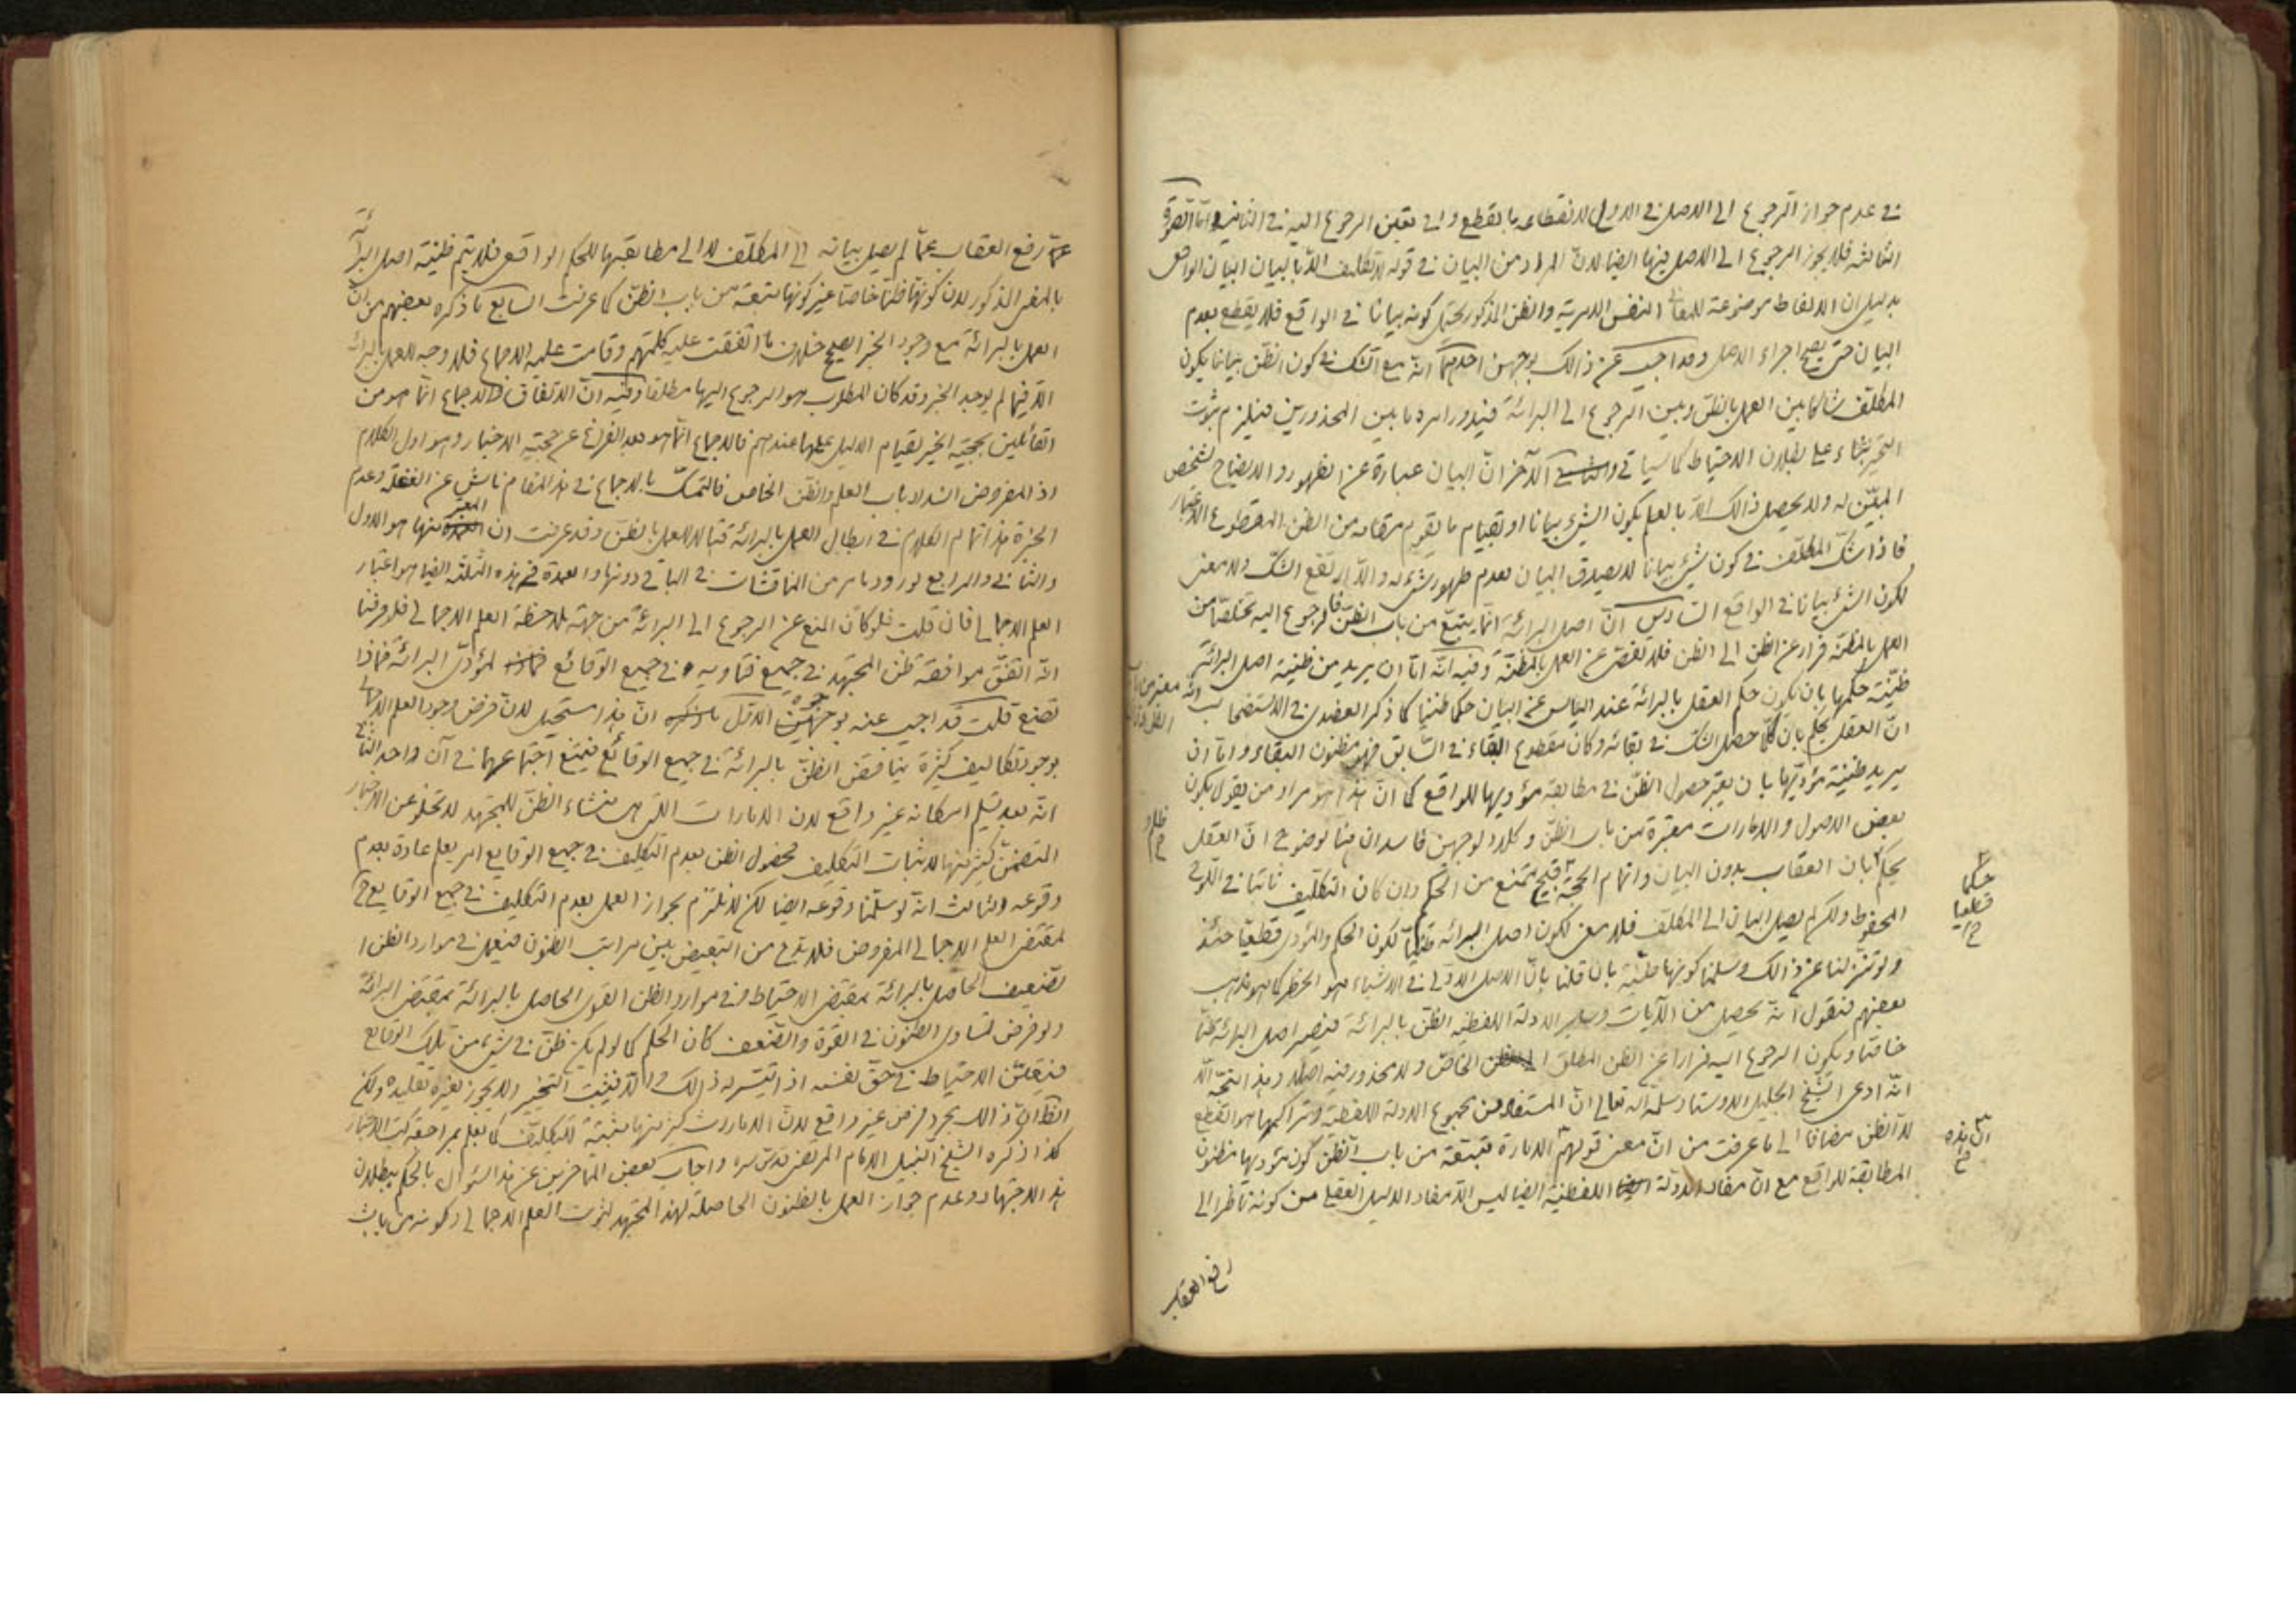 في عدم جواز الرجوع الى الاصل في الاول لانقطاعه بالقطع وفي تعين الرجوع اليه في الثاني وامّا الصورة
الثالثة فلا يجوز الرجوع الى الاصل فيها ايضا لانّ المراد من البيان في قوله لا تكليف الّا بالبيان البيان الواقعي
بدليل ان الالفاظ موضوعة للمعاني النفس الامرية والظن المذكور يحتمل كونه بيانا في الواقع فلا يقطع بعدم
البيان حتى يصح اجراء الاصل وقد اجيب عن ذالك بوجهين احدهما انّه مع الشك في كون الظنّ بيانا يكون
المكلّف شاكا بين العمل بالظنّ وبين الرجوع الى البرائة فيدور امره ما بين المحذورين فيلزم ثبوت
التخيير بناء على بطلان الاحتياط كما سياتي و الآخر انّ البيان عبارة عن الظهور والايضاح لشخص
المبيّن له ولا يحصل ذالك الّا بالعلم بكون الشيء بيانا او بقيام ما يقوم مقامه من الظن المقطوع الاعتبار
فاذا شكّ المكلّف في كون شيء بيانا لا يصدق البيان لعدم ظهور شيء له والّا لارتفع الشك ولا معنى
لكون الشيء بيانا في الواقع السّادس انّ اصل البرائة انّما يتبع من باب الظنّ فالرجوع اليه تخلّصا من
العمل بالمظنّة فرار عن الظن الى الظن فلا تقصّي عن العمل بالمظنّة وفيه انّه امّا ان يريد من ظنية اصل البرائة
ظنّية حكمها بان يكون حكم العقل بالبرائة عند الياس عن البيان حكما ظنيا كما ذكر العضدي في الاستصحاب
انّ العقل يحكم بان كلّما حصل الشك في بقائه وكان مقطوع البقاء في السّابق فهو مظنون البقاء وامّا ان
يريد ظنية مؤدّيها بان يعتبر حصول الظنّ في مطابقة مؤديها للواقع كما انّ هذا هو مراد من يقول بكون
بعض الاصول والامارات معتبرة من باب الظنّ وكلا الوجهين فاسدان لوضوح انّ العقل
يحكم بان العقاب بدون البيان واتمام الحجّة قبيح يمتنع من الحكيم وان كان التكليف ثابتا في اللّوح
المحفوظ ولكن لم يصل البيان الى المكلّف فلا معنى لكون اصل البرائة ظنّيّا لكون الحكم والمؤدى قطعيّا حينئذ
ولو تنزلنا عن ذالك وسلّمنا كونها ظنّية بان قلنا بانّ الاصل الاوّلي في الاشياء هو الحظر كما هو مذهب
بعضهم فنقول انّه يحصل من الآيات وساير الادلة اللفظية الظنّ بالبرائة فيصير اصل البرائة ظنّا
خاصّا ويكون الرجوع اليه فرارا عن الظن المطلق الى الظن الخاصّ ولا محذور فيه اصلا وهذا متجّه الّا
انّه ادعى الشّيخ الجليل الاوستاد سلّمه اللّه تعالى انّ المستفاد من مجموع الادلة اللفظية وتراكمها هو القطع
لا الظن مضافا الى ما عرفت من انّ معنى قولهم الامارة متّبعة من باب الظنّ كون مؤديها مظنون
المطابقة للواقع مع انّ مفاد الادلة اللفظية ايضا ليس الّا مفاد الدليل العقلي من كونه ناظرا الى
رفع العقاب
حكما
قطعيا
انّ هذه
عمّا رفع العقاب عمّا لم يصل بيانه الى المكلّف لا الى مطابقتها للحكم الواقعي فلا يتم ظنية اصل البرائة
بالمعنى المذكور لان كونها ظنّا خاصّا غير كونها متبعة من باب الظنّ كما عرفت السابع ما ذكره بعضهم من انّ
العمل بالبرائة مع وجود الخبر الصحيح خلاف ما اتفقت عليه كلمتهم وقامت عليه الاجماع فلا وجه للعمل بالبرائة
الّا فيما لم يوجد الخبر وقد كان المطلوب هو الرجوع اليها مطلقا وفيه انّ الاتفاق والاجماع انّما هو من
القائلين بحجيّة الخبر لقيام الدليل عليها عندهم فالاجماع انّما هو بعد الفراغ عن حجيّة الاخبار وهو اول الكلام
اذ المفروض انسداد باب العلم والظن الخاص فالتمسّك بالاجماع في هذا المقام ناش عن الغفلة وعدم
الخبرة هذا تمام الكلام في ابطال العمل بالبرائة قبالا للعمل بالظنّ وقد عرفت ان المعتبر منها هو الاول
والثاني والرابع لورود ما مر من المناقشات في الباقي دونها والعمدة في هذه الثلثة ايضا هو اعتبار
العلم الاجمالي فان قلت فلو كان المنع عن الرجوع الى البرائة من جهة ملاحظة العلم الاجمالي فلو فرضنا
انّه اتفق موافقة ظن المجتهد في جميع فتاويه في جميع الوقائع لمؤدّى البرائة فماذا
تصنع قلت قد اجيب عنه بوجوه الاوّل انّ هذا مستحيل لانّ فرض وجود العلم الاجمالي
بوجود تكاليف كثيرة يناقض الظنّ بالبرائة في جميع الوقائع فيمتنع اجتماعهما في آن واحد الثاني
انّه بعد تسليم امكانه غير واقع لان الامارات اللتي هي منشاء الظنّ للمجتهد لا تخلو عن الاخبار
المتضمّن كثير منها لاثبات التكليف فحصول الظن بعدم التكليف في جميع الوقايع امر يعلم عادة بعدم
وقوعه الثالث انّه لو سلّمنا وقوعه ايضا لكن لا نلتزم بجواز العمل بعدم التكليف في جميع الوقايع
لمقتضى العلم الاجمالي المفروض فلا بدّ من التبعيض بين مراتب الظنون فيعمل في موارد الظن
الضّعيف الحاصل بالبرائة بمقتضى الاحتياط وفي موارد الظن القوي الحاصل بالبرائة بمقتضى البرائة
ولو فرض تساوي الظنون في القوة والضّعف كان الحكم كما لو لم يكن ظنّ في شيء من تلك الوقايع
فيتعيّن الاحتياط في حقّ نفسه اذا تيسّر له ذالك والّا فيثبت التخيير ولا يجوز لغيره تقليده ولكن
الظاهر انّ ذالك مجرد فرض غير واقع لانّ الامارات كثير منها مثبتة للتكليف كما يعلم بمراجعة كتب الاخبار
كذا ذكره الشّيخ النبيل الامام المرتضى قدّس سره واجاب بعض المتاخرين عن هذا السّؤال بالحكم ببطلان
هذا الاجتهاد وعدم جواز العمل بالظنون الحاصلة لهذا المجتهد لثبوت العلم الاجمالي وكونه من باب